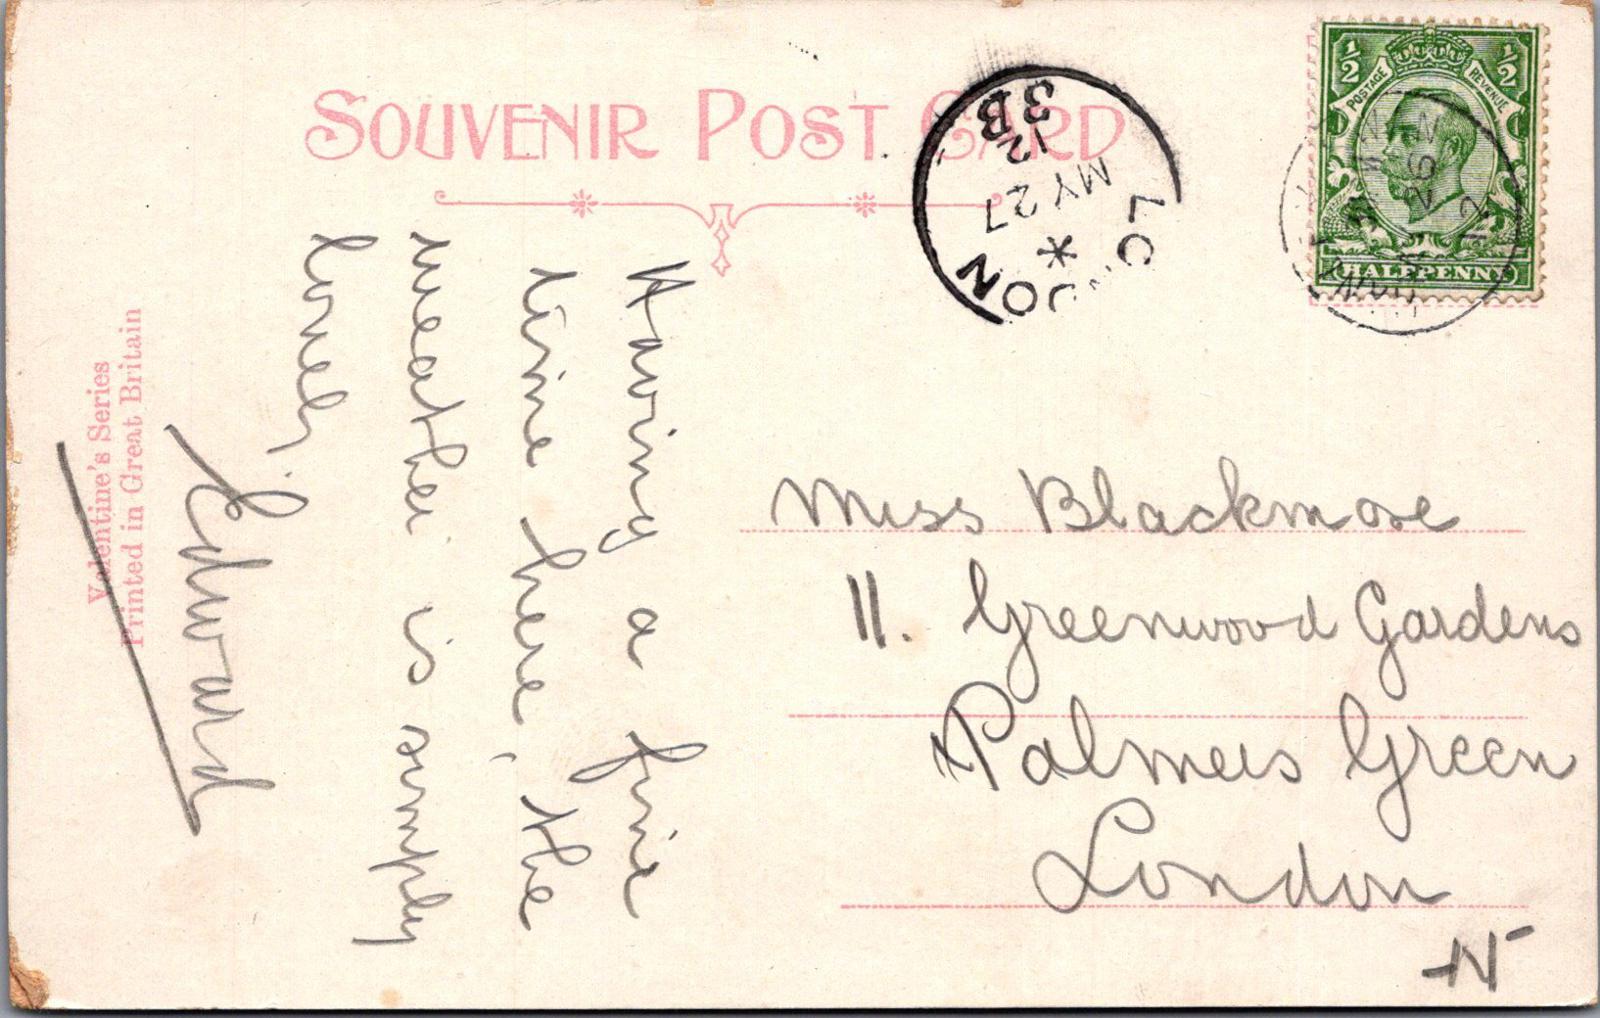 SOUVENIR POST CARD
Having a fine
time here, the
weather is simply
lovely.
Edward
Valentine's Series
Printed in Great Britain
LONDON
MY 27
12
3B
1/2 1/2
POSTAGE REVENUE
HALFPENNY
26
12
Miss Blackmore
11. Greenwood Gardens
Palmers Green
London
N